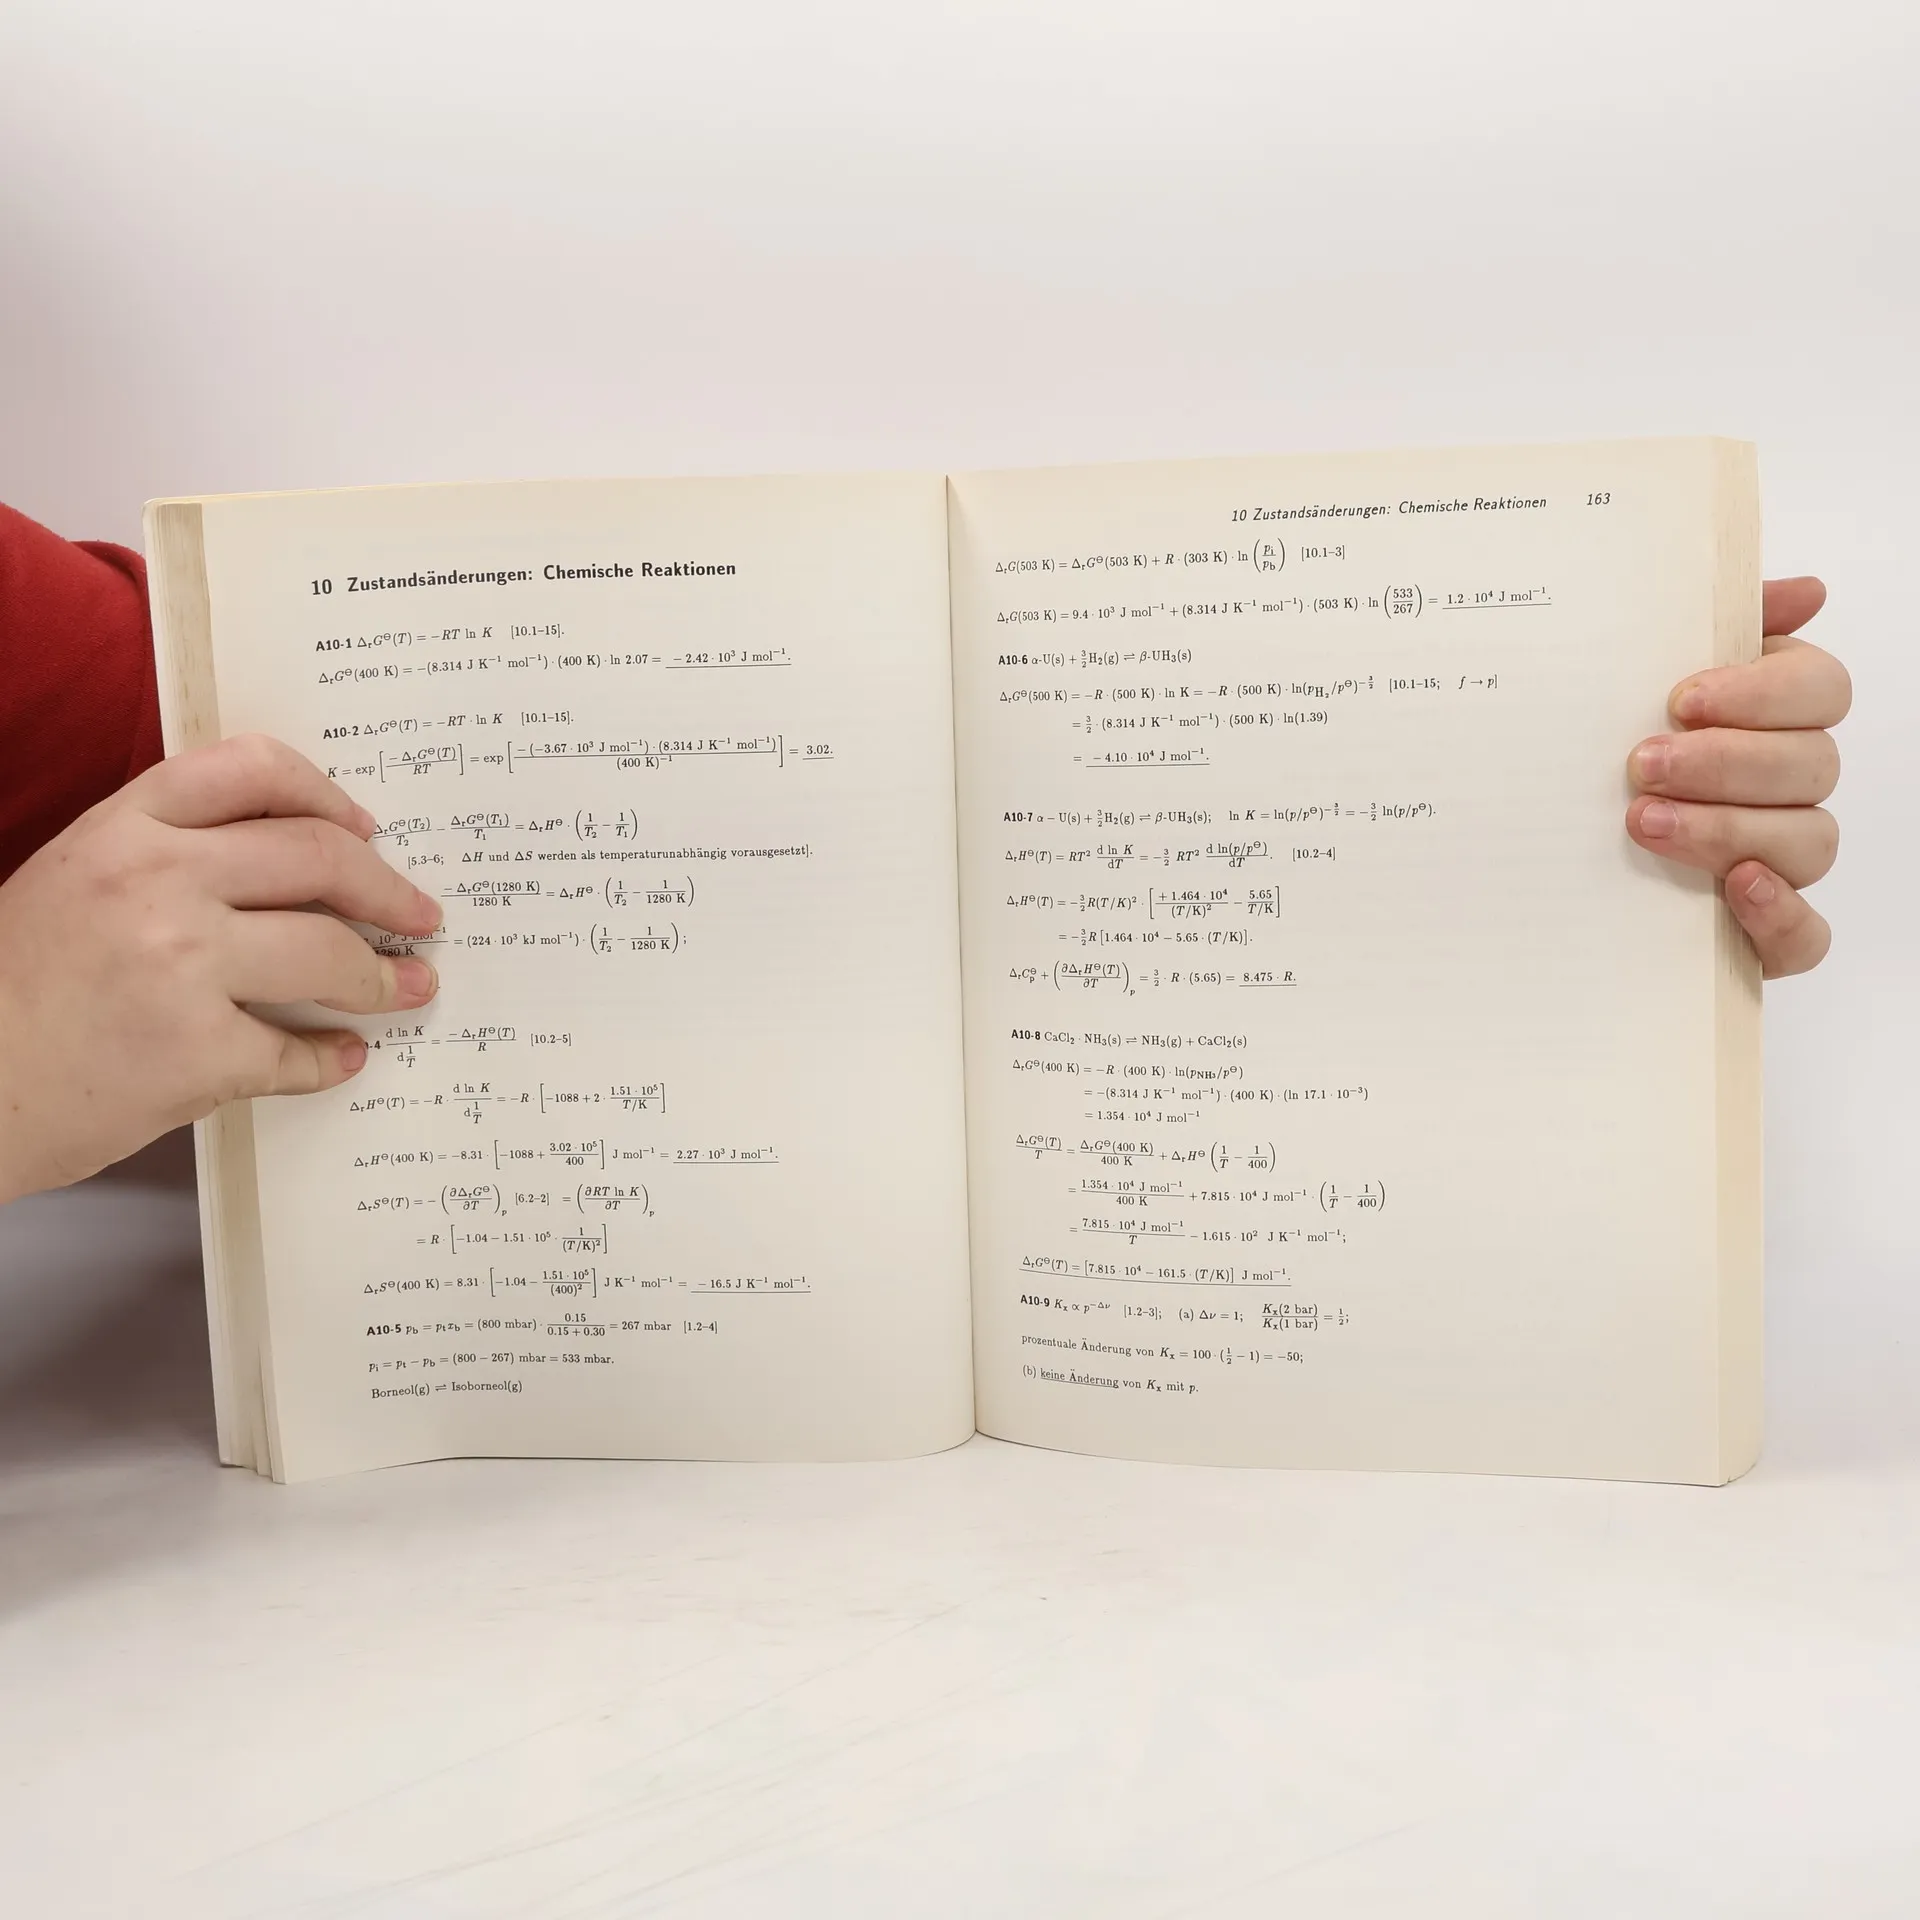 10 Zustandsänderungen: Chemische Reaktionen
A10-1 Δ_rG^⊖(T) = −RT ln K [10.1–15].
Δ_rG^⊖(400 K) = −(8.314 J K^−1 mol^−1) · (400 K) · ln 2.07 = − 2.42 · 10^3 J mol^−1.
A10-2 Δ_rG^⊖(T) = −RT · ln K [10.1–15].
K = exp [− Δ_rG^⊖(T) / RT] = exp [− (−3.67 · 10^3 J mol^−1) · (8.314 J K^−1 mol^−1) / (400 K)^−1] = 3.02.
Δ_rG^⊖(T_2)/T_2 − Δ_rG^⊖(T_1)/T_1 = Δ_rH^⊖ · (1/T_2 − 1/T_1)
[5.3–6; ΔH und ΔS werden als temperaturunabhängig vorausgesetzt].
− Δ_rG^⊖(1280 K) / 1280 K = Δ_rH^⊖ · (1/T_2 − 1/1280 K)
· 10^3 J mol^−1 / 1280 K = (224 · 10^3 kJ mol^−1) · (1/T_2 − 1/1280 K);
-4 d ln K / d(1/T) = − Δ_rH^⊖(T) / R [10.2–5]
Δ_rH^⊖(T) = −R · d ln K / d(1/T) = −R · [−1088 + 2 · 1.51 · 10^5 / T/K]
Δ_rH^⊖(400 K) = −8.31 · [−1088 + 3.02 · 10^5 / 400] J mol^−1 = 2.27 · 10^3 J mol^−1.
Δ_rS^⊖(T) = − (∂Δ_rG^⊖ / ∂T)_p [6.2–2] = (∂RT ln K / ∂T)_p
= R · [−1.04 − 1.51 · 10^5 · 1 / (T/K)^2]
Δ_rS^⊖(400 K) = 8.31 · [−1.04 − 1.51 · 10^5 / (400)^2] J K^−1 mol^−1 = − 16.5 J K^−1 mol^−1.
A10-5 p_b = p_t x_b = (800 mbar) · 0.15 / 0.15 + 0.30 = 267 mbar [1.2–4]
p_i = p_t − p_b = (800 − 267) mbar = 533 mbar.
Borneol(g) ⇌ Isoborneol(g)
10 Zustandsänderungen: Chemische Reaktionen 163
Δ_rG(503 K) = Δ_rG^⊖(503 K) + R · (303 K) · ln (p_i / p_b) [10.1–3]
Δ_rG(503 K) = 9.4 · 10^3 J mol^−1 + (8.314 J K^−1 mol^−1) · (503 K) · ln (533 / 267) = 1.2 · 10^4 J mol^−1.
A10-6 α-U(s) + 3/2 H_2(g) ⇌ β-UH_3(s)
Δ_rG^⊖(500 K) = −R · (500 K) · ln K = −R · (500 K) · ln(p_H_2/p^⊖)^−3/2 [10.1–15; f → p]
= 3/2 · (8.314 J K^−1 mol^−1) · (500 K) · ln(1.39)
= − 4.10 · 10^4 J mol^−1.
A10-7 α − U(s) + 3/2 H_2(g) ⇌ β-UH_3(s); ln K = ln(p/p^⊖)^−3/2 = −3/2 ln(p/p^⊖).
Δ_rH^⊖(T) = RT^2 d ln K / dT = −3/2 RT^2 d ln(p/p^⊖) / dT. [10.2–4]
Δ_rH^⊖(T) = −3/2 R(T/K)^2 · [+ 1.464 · 10^4 / (T/K)^2 − 5.65 / T/K]
= −3/2 R [1.464 · 10^4 − 5.65 · (T/K)].
Δ_rC_p^⊖ + (∂Δ_rH^⊖(T) / ∂T)_p = 3/2 · R · (5.65) = 8.475 · R.
A10-8 CaCl_2 · NH_3(s) ⇌ NH_3(g) + CaCl_2(s)
Δ_rG^⊖(400 K) = −R · (400 K) · ln(p_NH_3/p^⊖)
= −(8.314 J K^−1 mol^−1) · (400 K) · (ln 17.1 · 10^−3)
= 1.354 · 10^4 J mol^−1
Δ_rG^⊖(T) / T = Δ_rG^⊖(400 K) / 400 K + Δ_rH^⊖ (1/T − 1/400)
= 1.354 · 10^4 J mol^−1 / 400 K + 7.815 · 10^4 J mol^−1 · (1/T − 1/400)
= 7.815 · 10^4 J mol^−1 / T − 1.615 · 10^2 J K^−1 mol^−1;
Δ_rG^⊖(T) = [7.815 · 10^4 − 161.5 · (T/K)] J mol^−1.
A10-9 K_x ∝ p^−Δν [1.2–3]; (a) Δν = 1; K_x(2 bar) / K_x(1 bar) = 1/2;
prozentuale Änderung von K_x = 100 · (1/2 − 1) = −50;
(b) keine Änderung von K_x mit p.